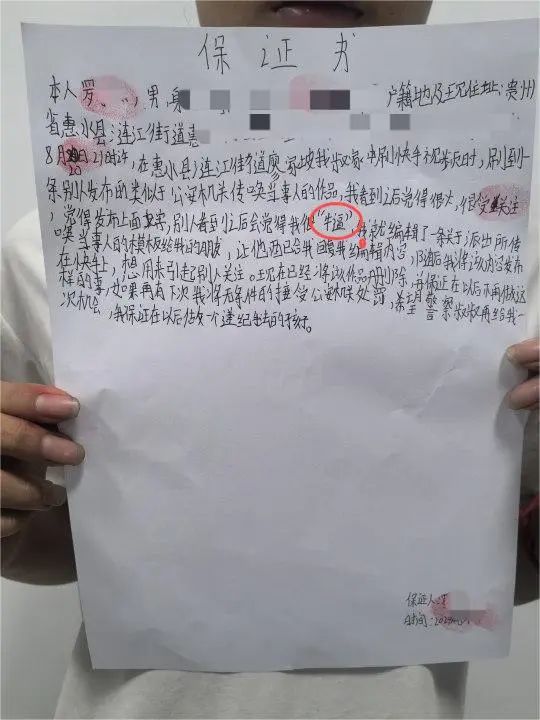 保证书
本人罗 ，男，身 户籍地及现住址：贵州
省惠水县涟江街道惠
8月20日21时许，在惠水县涟江街道廖家坡我叔叔家中刷快手视频时，刷到一
条别人发布的类似于公安机关传唤当事人的作品，我看到之后觉得很火，很受关注
，觉得发布上面文字，别人看到之后会觉得我很“牛逼”，我就编辑了一条关于派出所传
唤当事人的模板给我的朋友，让他把已给我回复我编辑内容，随后我将该内容发布
在快手上，想用来引起别人关注。现在已经将该作品删除，再保证在以后不再做这
样的事，如果再有下次我将无条件的接受公安机关处罚，希望警察叔叔再给我一
次机会，我保证在以后做一个遵纪守法的好孩子。
保证人：罗
时间：202